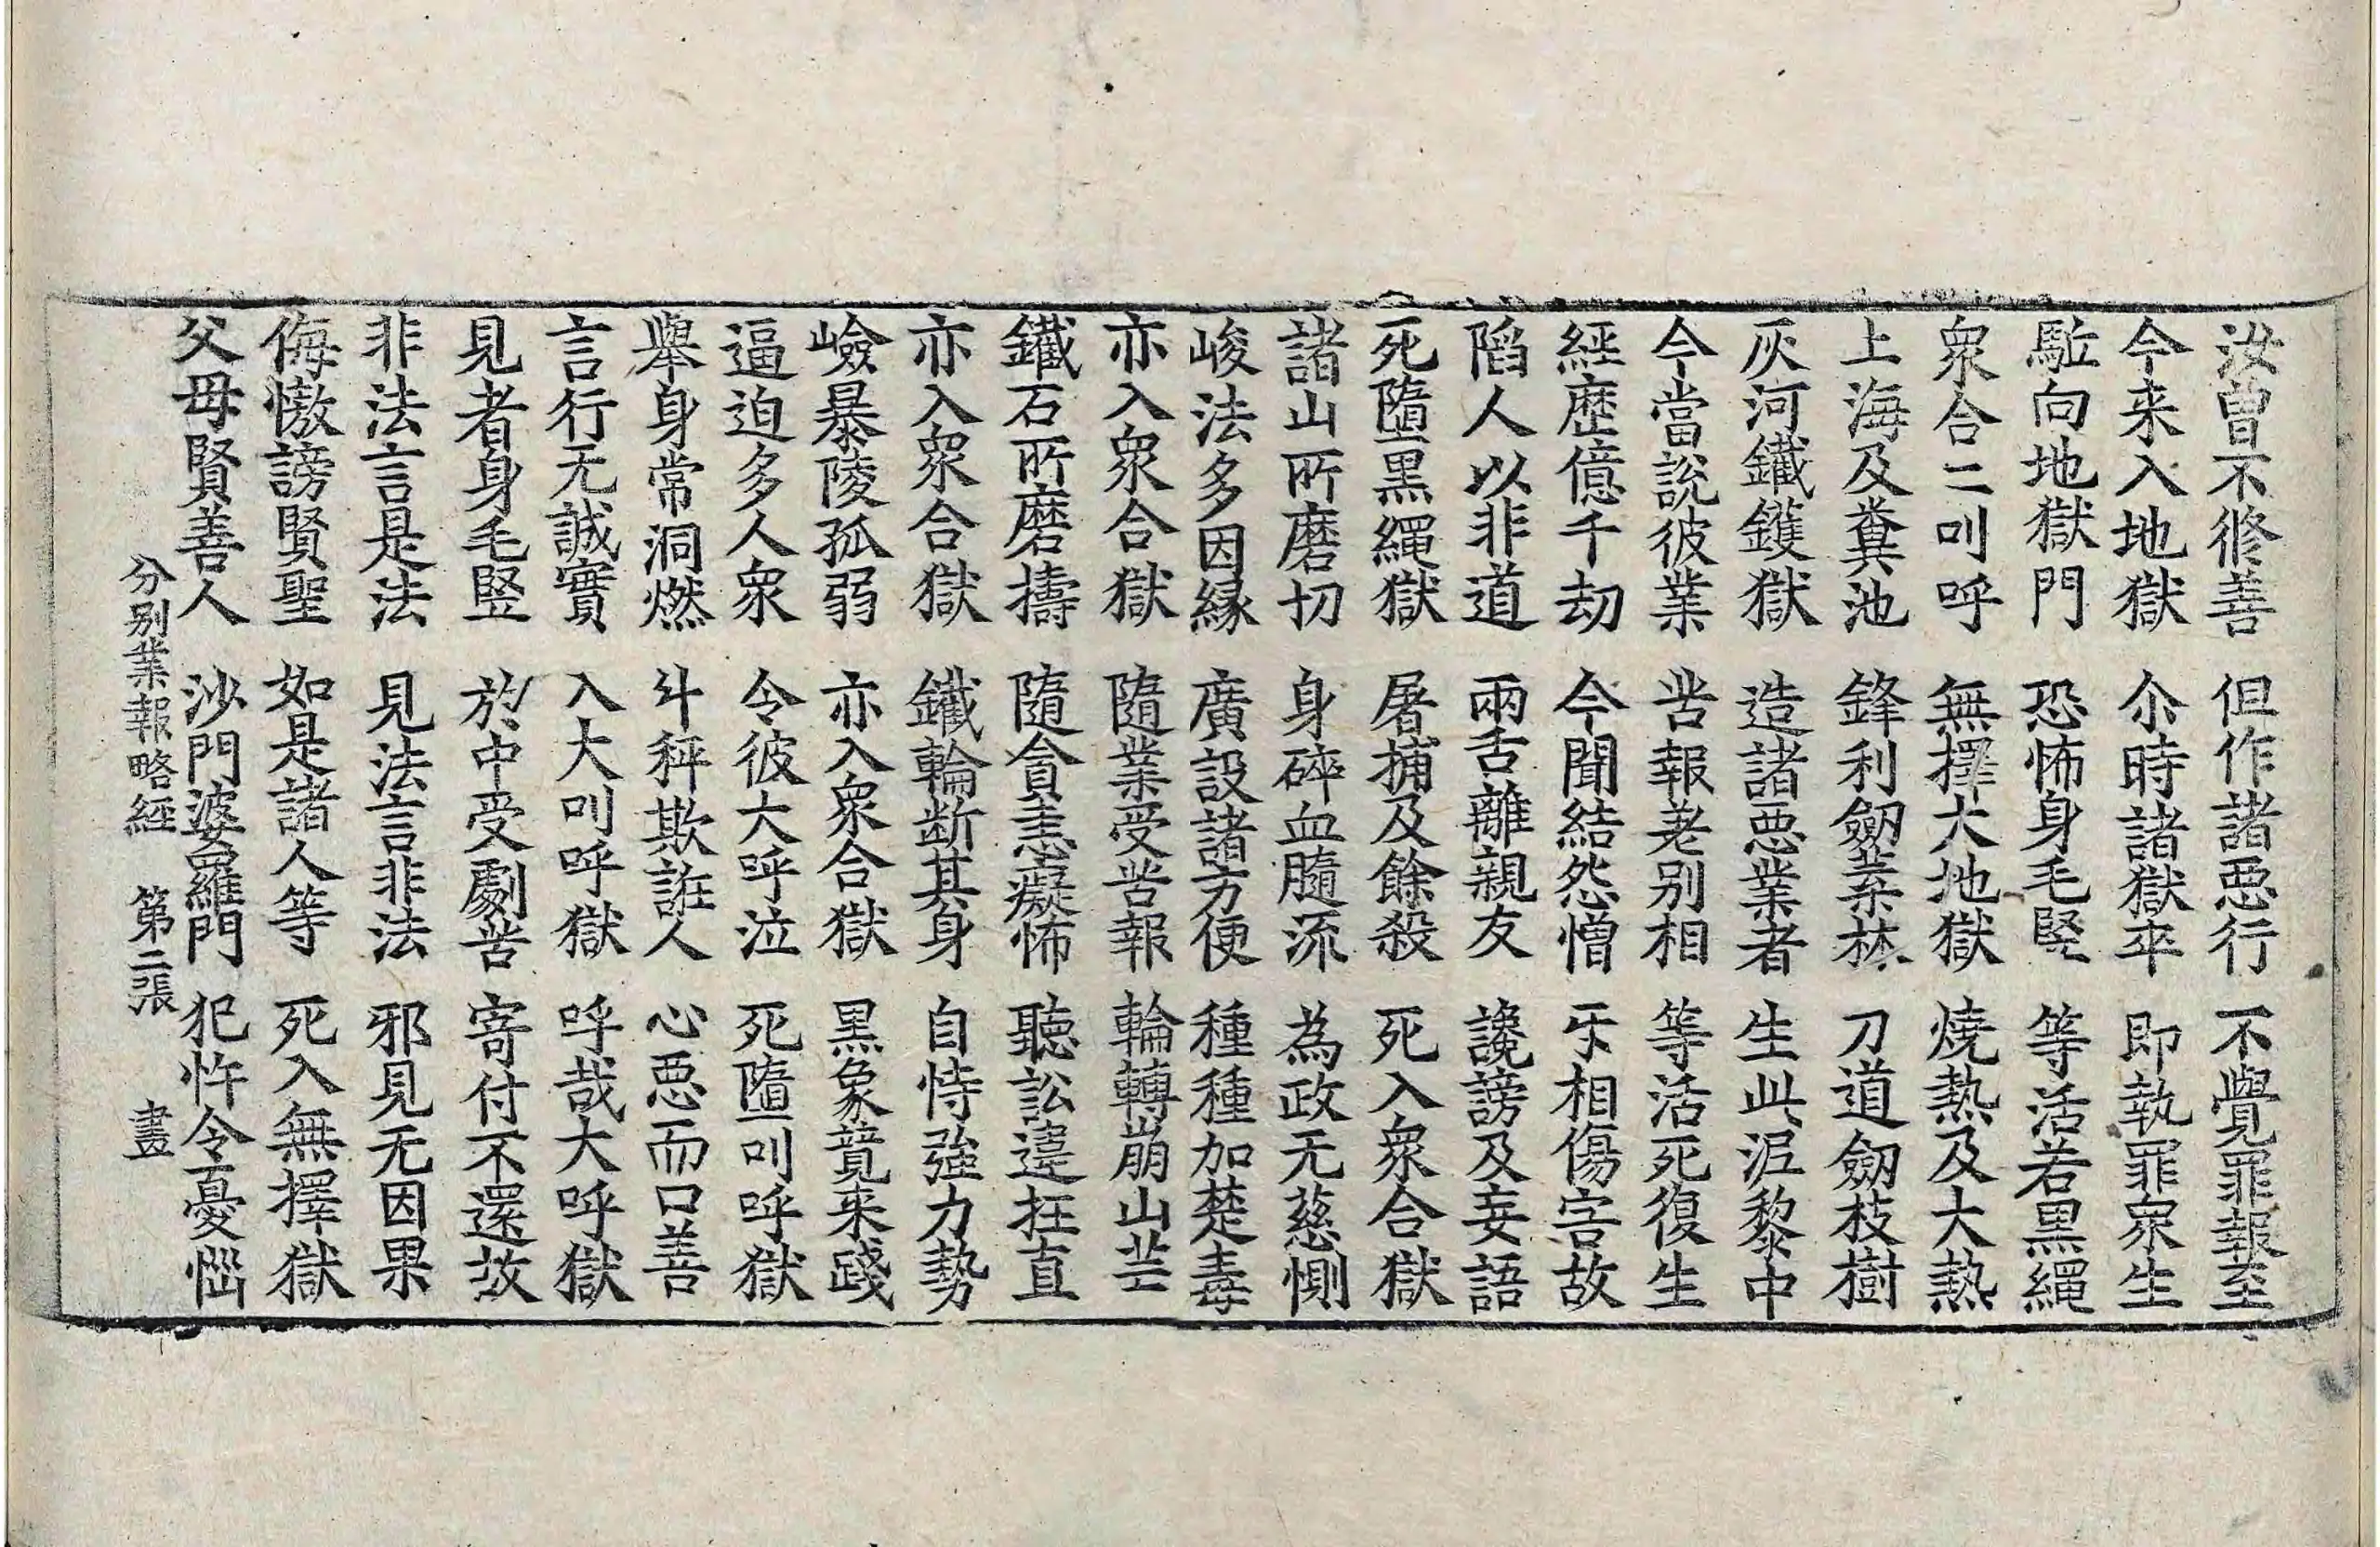 汝曾不修善 但作諸惡行 不覺罪報至
今来入地獄 尒時諸獄卒 即執罪衆生
駈向地獄門 恐怖身毛竪 等活若黒繩
衆合二叫呼 無擇大地獄 燒熱及大熱
上海及糞池 鋒利劒葉林 刀道劒枝樹
灰河鐵鑊獄 造諸惡業者 生此泥黎中
今當說彼業 苦報差别相 等活死復生
經歷億千劫 今聞結怨憎 㸦相傷害故
陷人以非道 兩舌離親友 讒謗及妄語
死墮黒繩獄 屠捕及餘殺 死入衆合獄
諸山所磨切 身碎血髓流 為政无慈惻
峻法多因緣 廣設諸方便 種種加楚毒
亦入衆合獄 隨業受苦報 輪轉崩山芒
鐵石所磨擣 隨貪恚癡怖 聽訟違抂直
亦入衆合獄 鐵輪斷其身 自恃強力勢
嶮暴陵孤弱 亦入衆合獄 黒象競来踐
逼迫多人衆 令彼大呼泣 死墮叫呼獄
舉身常洞燃 斗秤欺誑人 心惡而口善
言行无誠實 入大叫呼獄 呼哉大呼獄
見者身毛竪 於中受劇苦 寄付不還故
非法言是法 見法言非法 邪見无因果
侮慠謗賢聖 如是諸人等 死入無擇獄
父母賢善人 沙門婆羅門 犯忤令憂惱
分别業報略經 第二張 畫